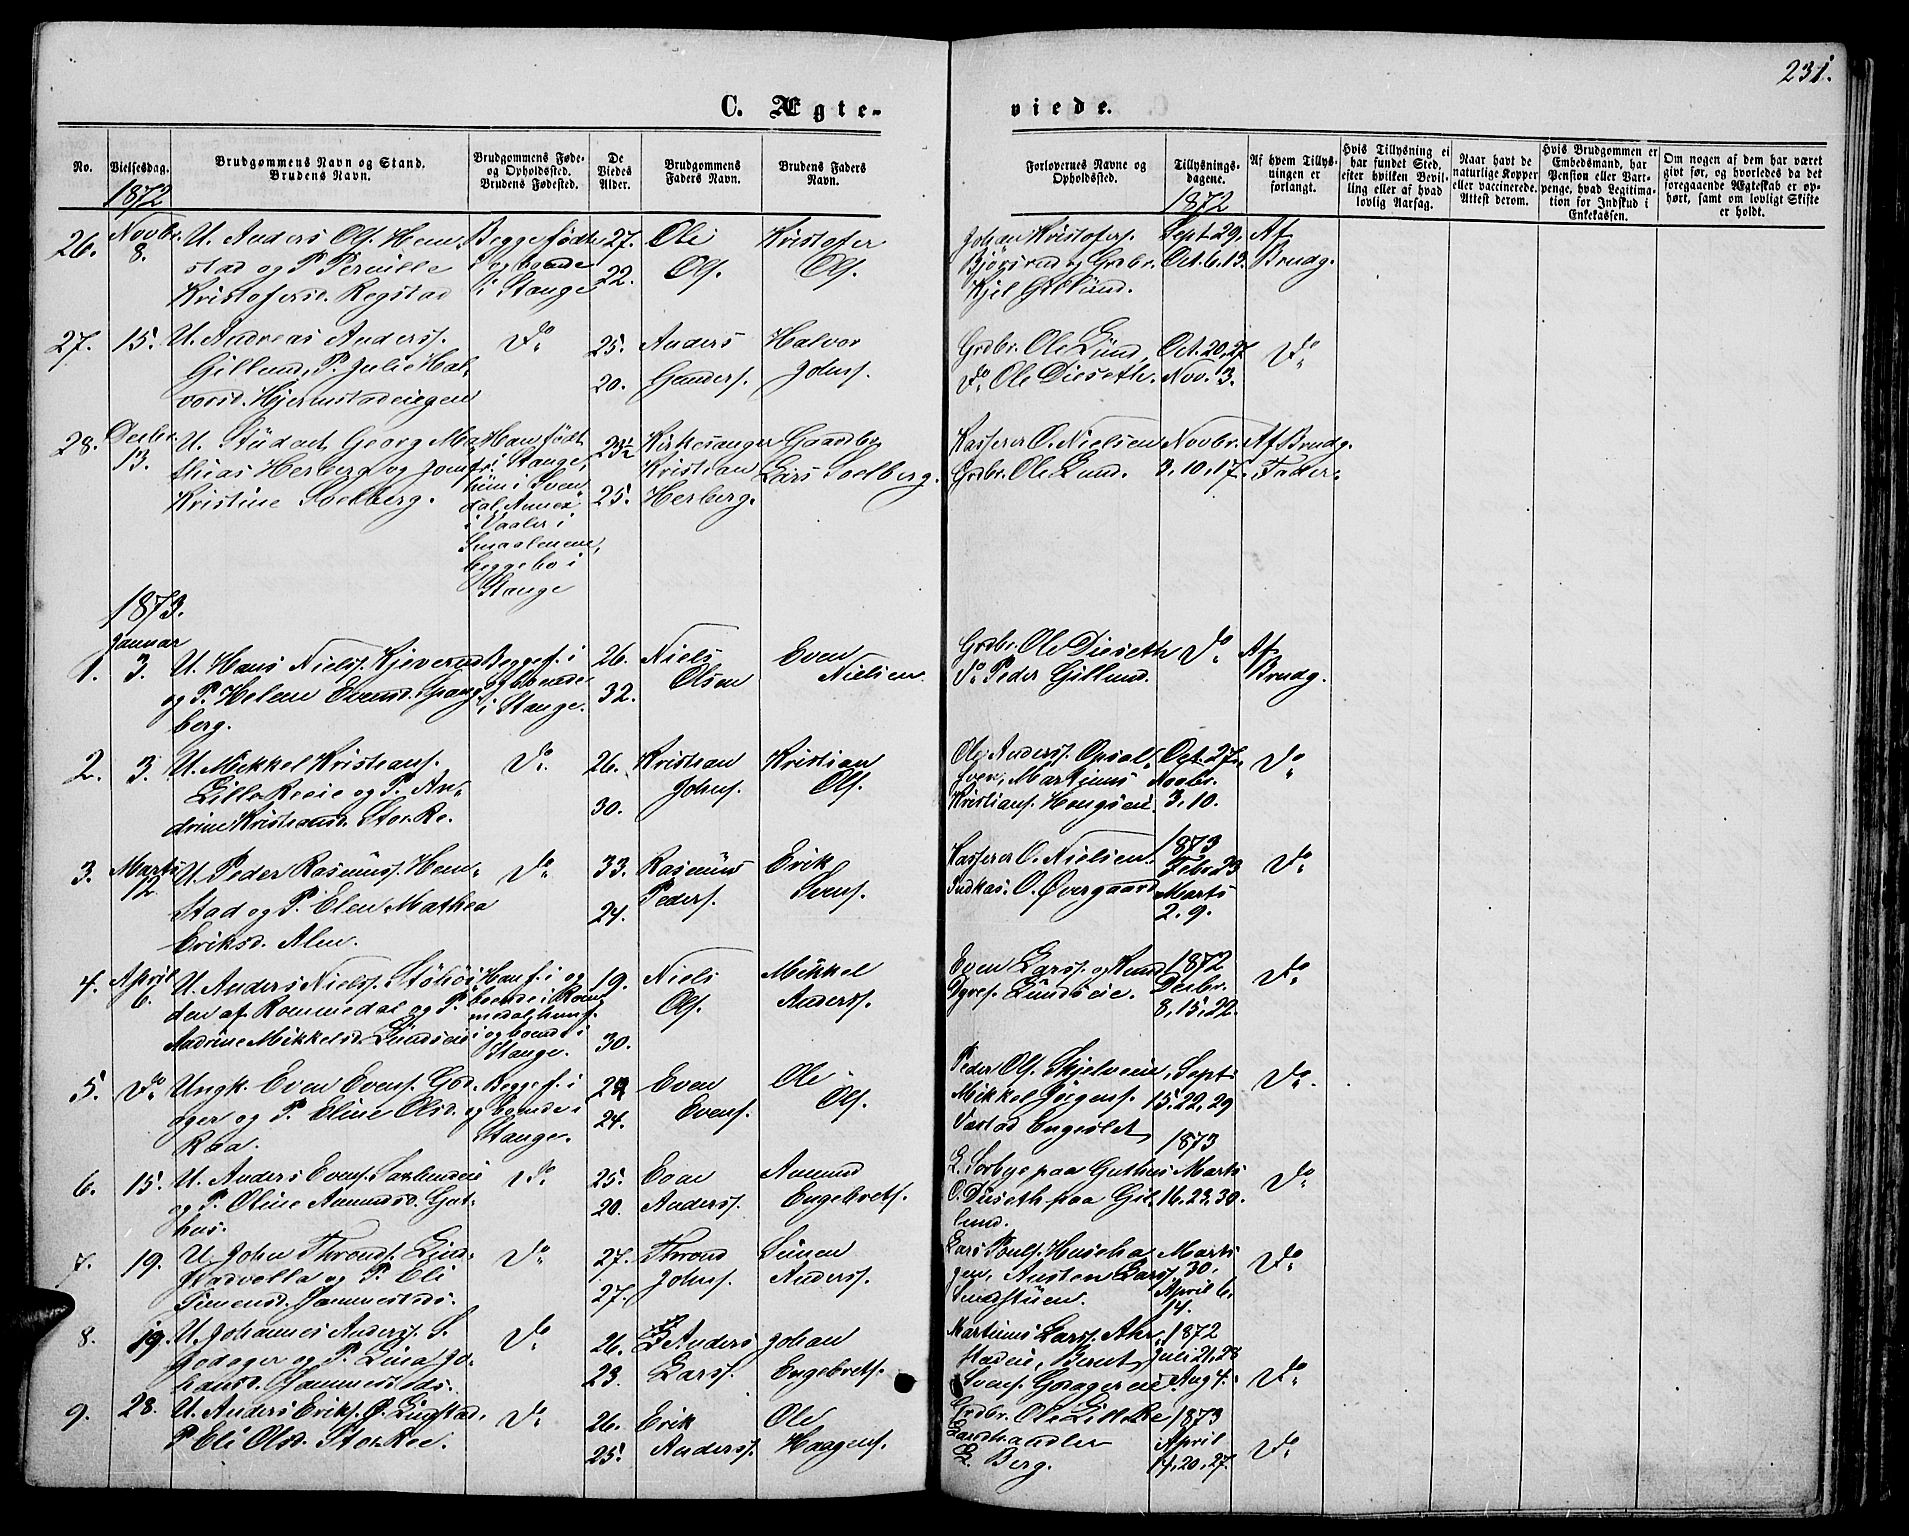 231.
C. Ægte-
viede.
No.
Vielsesdag.
Brudgommens Navn og Stand.
Brudens Navn.
Brudgommens Føde-
og Opholdssted.
Brudens Fødested.
De
Viedes
Alder.
Brudgommens
Faders Navn.
Brudens Faders
Navn.
Forlovernes Navne og
Opholdssted.
Tillysnings-
dagene.
Af hvem Tillys-
ningen er
forlangt.
Hvis Tillysning ei
har fundet Sted,
efter hvilken Bevil-
ling eller af hvad
lovlig Aarsag.
Naar havt de
naturlige Kopper
eller vaccinerede.
Attest derom.
Hvis Brudgommen er
Embedsmand, har
Pension eller Vart-
penge, hvad Legitima-
tion for Indskud i
Enkekassen.
Om nogen af dem har været
givt før, og hvorledes da det
foregaaende Ægteskab er op-
hørt, samt om lovligt Skifte
er holdt.
1872
1872
26.
Novbr.
8.
U. Anders Ols. Hem-
stad og P. Pernille
Kristofersd. Rogstad
Begge født
i og boende
i Stange
27.
22.
Ole
Ols.
Kristofer
Ols.
Johan Kristofers.
Kjel Gillund.
Sept. 29.
Oct. 6. 13.
Af
Brudg.
27.
15.
U. Andreas Anderss.
Gillund, P. Julie Hal-
vorsd. Hjermstadeiegen
Do
25.
20.
Anders
Gunders.
Halvor
Johns.
Grdbr. Ole Lund,
Do Ole Dieseth.
Oct. 20, 27
Nov. 3.
Do
28.
Decbr.
13.
U. Student Georg Ma-
thias Herberg og Jomfr.
Kristine Soelberg.
Han født
i Stange,
hun i Sven
dal Annex
i Vaaler i
Smaalenene,
begge bo i
Stange
25.
Kirkesanger
Kristian
Herberg.
Gaardbr.
Lars Soelberg.
Kasserer O. Nielsen
Grdbr. Ole Lund.
Novbr.
3, 10, 17.
Af Brudg.
Fader.
1873.
Januar
1.
3.
U. Hans Niels. Kjeverud
og P. Helene Evensd. Spang
berg.
Begge f. i
og boende
i Stange.
26.
32.
Niels
Olsen
Even
Nielsen.
Grdbr. Ole Dieseth
Do Peder Gillund.
Do
Af
Brudg.
2.
3.
U. Mikkel Kristians.
Lille Reeie og P. An-
drine Kristiansd. Stor Re.
Do
26.
30.
Kristian
Johns.
Kristian
Ols.
Ole Anderss. Opsal-
Martinus
Kristians. Hougseie.
Oct. 27,
Novbr.
3, 10.
Do
3.
Marts
12.
U. Peder Rasmuss. Hem-
stad og P. Elen Mathea
Eriksd. Alen.
Do
33.
24.
Rasmus
Peders.
Erik
Svens.
Kasserer O. Nielsen
Indkas. O. Øvergaard
1873
Febr. 23
Marts
2. 9.
Do
4.
April
6.
U. Anders Niels.
den af Rommedal og P.
Andrine Mikkelsd. Lundseie
Han f. i og
boende i Rom
medal, hun f.
i og boende i
Stange.
19.
30.
Niels
Ols.
Mikkel
Anderss.
Even Larss. og Knud
Lundseie.
1872
Decbr.
8, 15, 22.
Do
5.
Do
Ungk. Even Evens. God-
ager og P. Eline Olsd.
Raa.
Begge f. i
og boende i
Stange.
24.
Even
Evens.
Ole
Ols.
Peder Ols. Skjelveie,
Mikkel Jörgens.
Sept.
15, 22, 29
Do
6.
15.
U. Anders Evens. Saxlundeie
og P. Oline Amundsd. Gut-
hus.
Do
25.
20.
Even
Anders.
Amund
Engebrets.
L. Sørbye paa Guthus
O. Dieseth paa Gil-
lund.
1873
Marts
16, 23, 30.
Do
7.
19.
U. John Thronds. Lind-
stadvolla og P. Eli
Simensd. Jommestads.
Do
27.
27.
Thrond
Johns.
Simen
Anders.
Lars Pouls. Huseha
gen, Austen Larss.
Marts
30.
April 6,
14.
Do
8.
19.
U. Johannes Anderss. S.
Godager og P. Lina Jo-
hansd. Jommestads.
Do
26.
23.
Anders
Larss.
Johan
Engebrets.
Martinus Larss. Ahr-
stadeie, Bernt
Svens. Godagereie.
1872
Juli 21, 28
Aug 4.
Do
9.
28.
U. Anders Eriks. Ø. Lingstad,
P. Eli Olsd. Stor Ree.
Do
26.
25.
Erik
Anderss.
Ole
Haagens.
Grdbr. Ole Lille Re
Landhandler
L. Berg.
1873
April
14, 20, 27.
Do